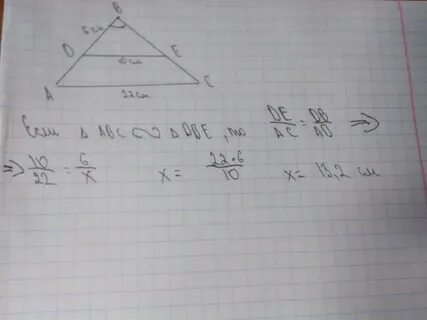 B
6 см
D E
10 см
A C
22 см
Если Δ ABC ∽ Δ DBE, то DE/AC = DB/AD ⇒
⇒ 10/22 = 6/x x = 22·6/10 x = 13,2 см